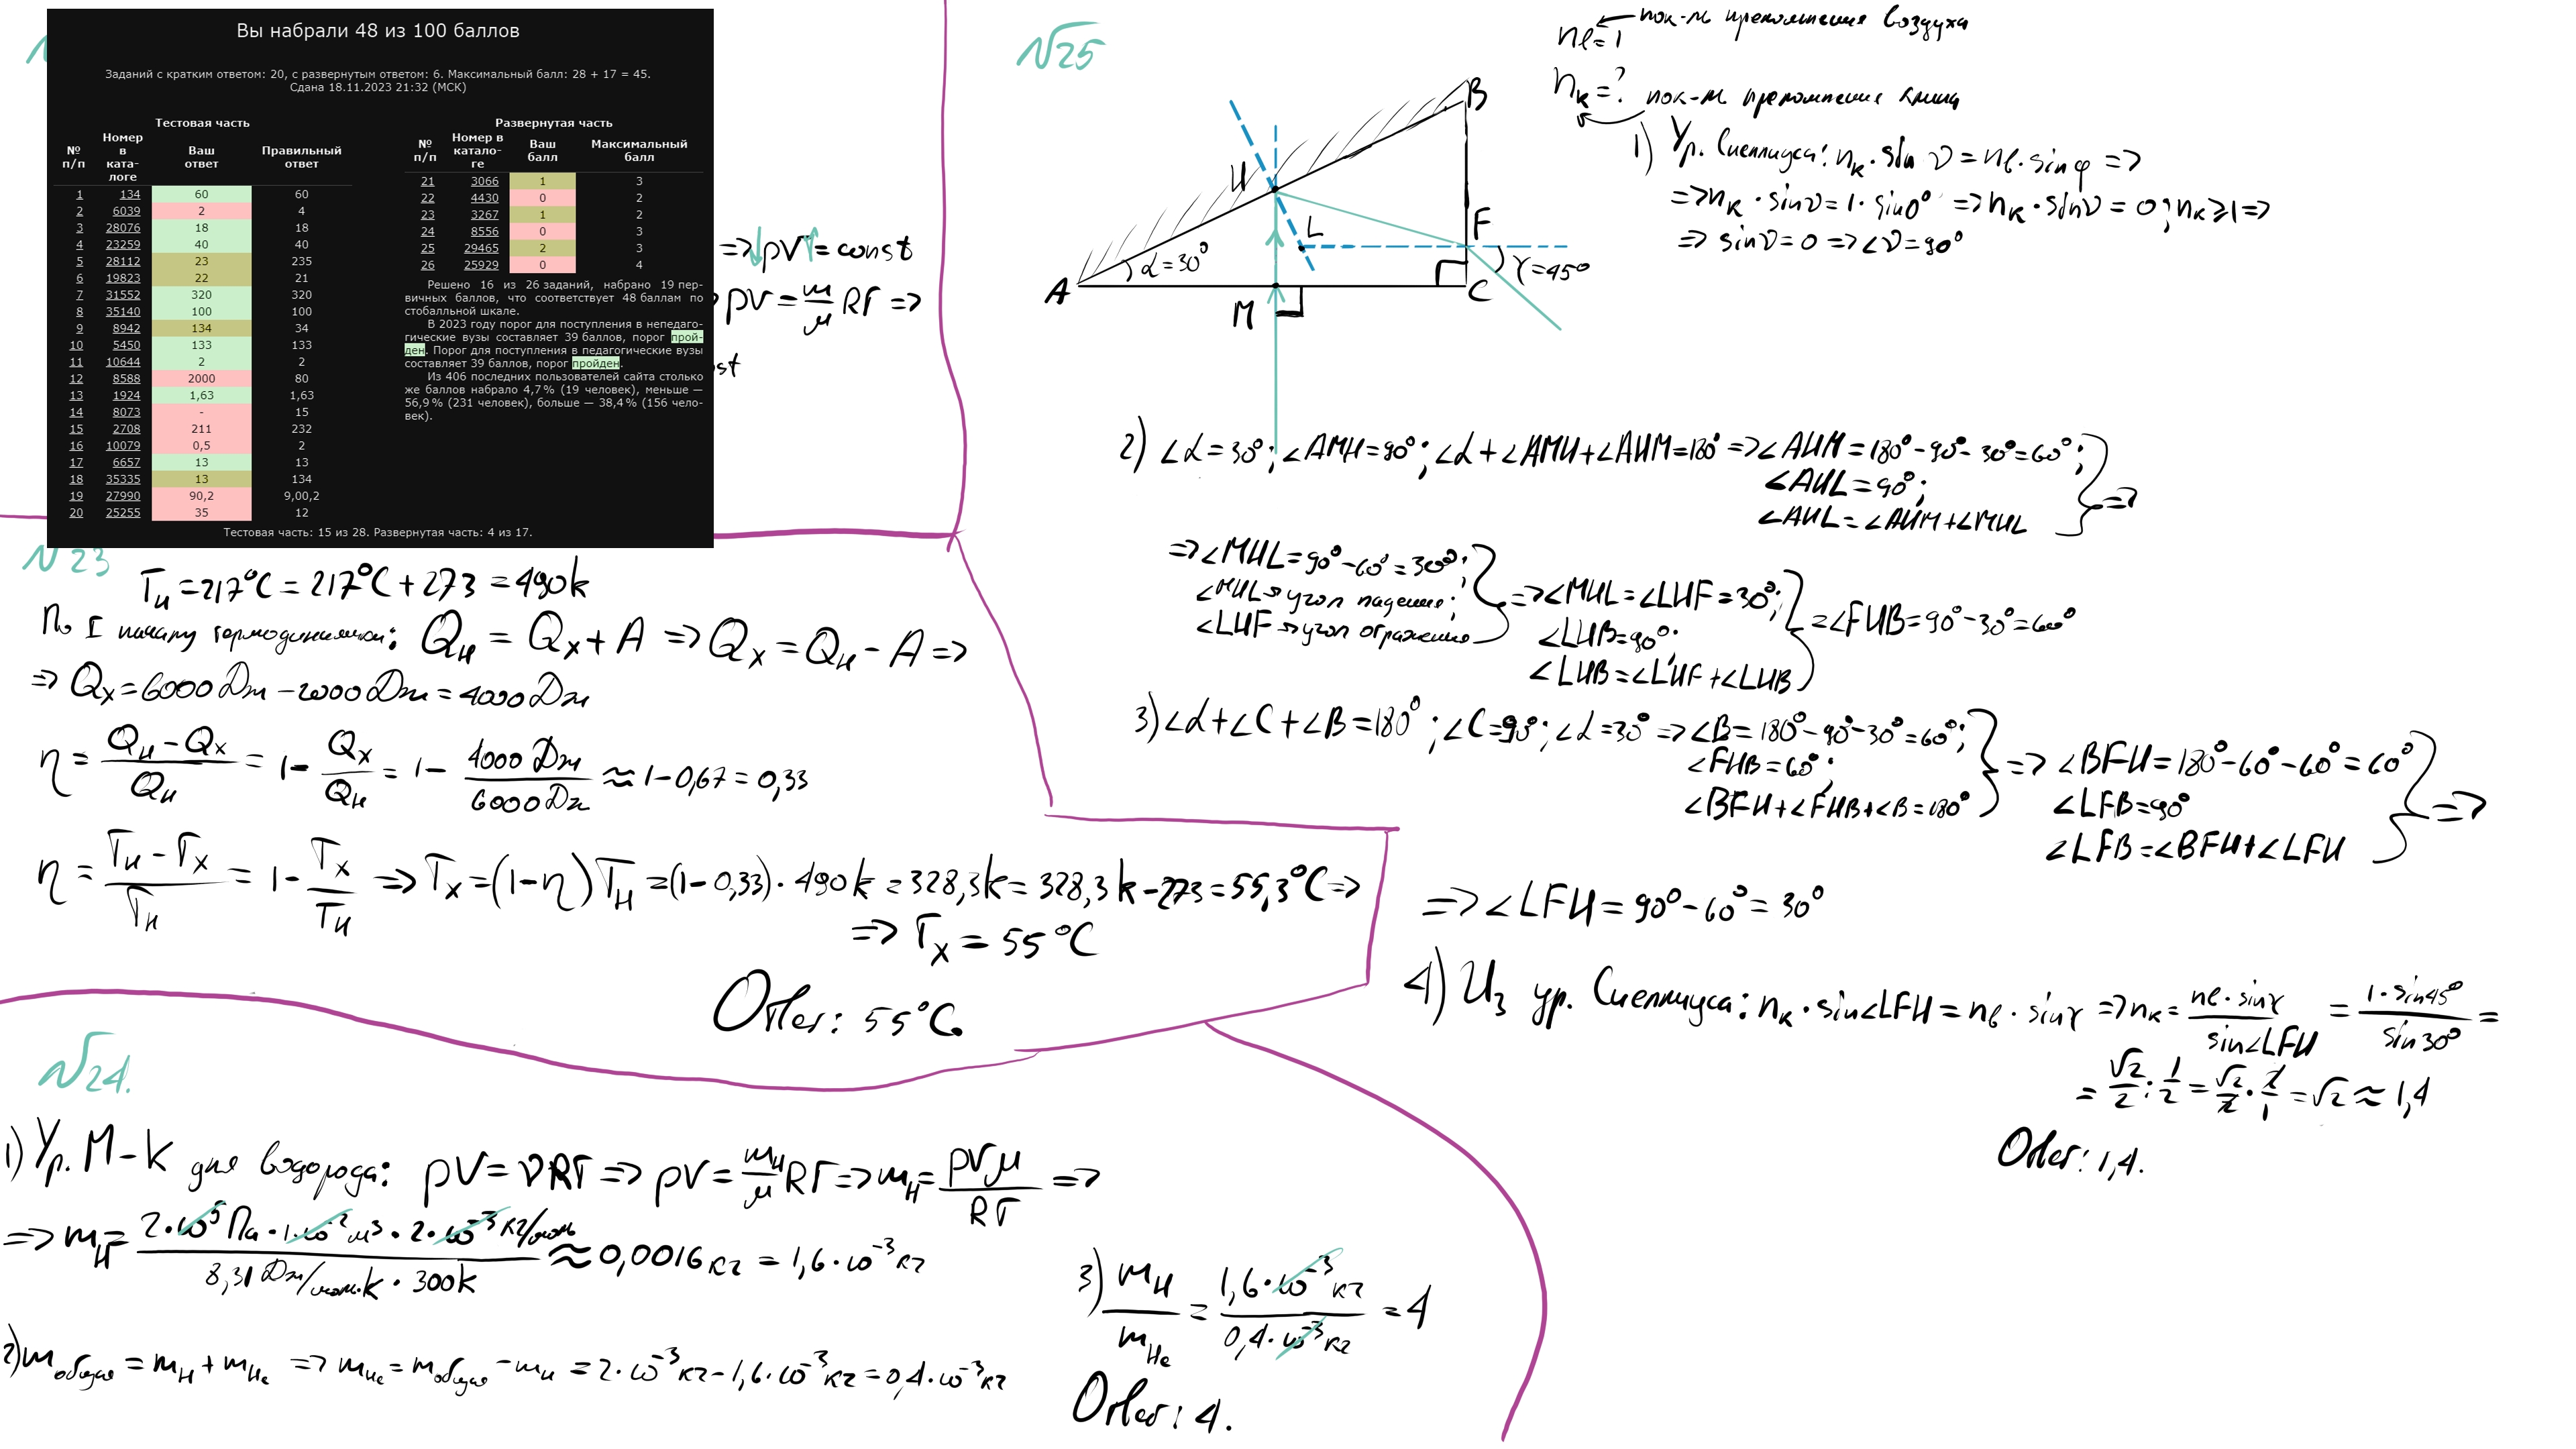 Вы набрали 48 из 100 баллов
Заданий с кратким ответом: 20, с развернутым ответом: 6. Максимальный балл: 28 + 17 = 45.
Сдана 18.11.2023 21:32 (МСК)
Тестовая часть
№ п/п Номер в ката-логе Ваш ответ Правильный ответ
1 134 60 60
2 6039 2 4
3 28076 18 18
4 23259 40 40
5 28112 23 235
6 19823 22 21
7 31552 320 320
8 35140 100 100
9 8942 134 34
10 5450 133 133
11 10644 2 2
12 8588 2000 80
13 1924 1,63 1,63
14 8073 - 15
15 2708 211 232
16 10079 0,5 2
17 6657 13 13
18 35335 13 134
19 27990 90,2 9,00,2
20 25255 35 12
Развернутая часть
№ п/п Номер в катало-ге Ваш балл Максимальный балл
21 3066 1 3
22 4430 0 2
23 3267 1 2
24 8556 0 3
25 29465 2 3
26 25929 0 4
Решено 16 из 26 заданий, набрано 19 пер-
вичных баллов, что соответствует 48 баллам по
стобалльной шкале.
В 2023 году порог для поступления в непедаго-
гические вузы составляет 39 баллов, порог прой-
ден. Порог для поступления в педагогические вузы
составляет 39 баллов, порог пройден.
Из 406 последних пользователей сайта столько
же баллов набрало 4,7 % (19 человек), меньше —
56,9 % (231 человек), больше — 38,4 % (156 чело-
век).
Тестовая часть: 15 из 28. Развернутая часть: 4 из 17.
=> pVT = const
pV = m/μ RT =>
st
№23
Tн = 217°C = 217°C + 273 = 490k
По I началу термодинамики: Qн = Qx + A => Qx = Qн - A =>
=> Qx = 6000 Дж - 2000 Дж = 4000 Дж
η = (Qн - Qx)/Qн = 1 - Qx/Qн = 1 - 4000 Дж/6000 Дж ≈ 1 - 0,67 = 0,33
η = (Tн - Tx)/Tн = 1 - Tx/Tн => Tx = (1-η)Tн = (1-0,33)·490k = 328,3k = 328,3k - 273 = 55,3°C =>
=> Tx = 55°C
Ответ: 55°C.
№24.
1) Ур. М-К для водорода: pV = νRT => pV = mн/μ RT => mн = pVμ/RT =>
=> mн = 2·10⁵ Па · 1·10⁻² м³ · 2·10⁻³ кг/моль / 8,31 Дж/моль·k · 300k ≈ 0,0016 кг = 1,6·10⁻³ кг
2) mобщая = mн + mHe => mHe = mобщая - mн = 2·10⁻³ кг - 1,6·10⁻³ кг = 0,4·10⁻³ кг
3) mн/mHe = 1,6·10⁻³ кг/0,4·10⁻³ кг = 4
Ответ: 4.
№25
A
B
C
И
L
F
M
α = 30°
γ = 45°
nв = 1 пок-ль преломления воздуха
nк = ? пок-ль преломления клина
1) Ур. Снеллиуса: nк · sin ν = nв · sin φ =>
=> nк · sin ν = 1 · sin 0° => nк · sin ν = 0; nк ≥ 1 =>
=> sin ν = 0 => ∠ν = 90°
2) ∠α = 30°; ∠AMИ = 90°; ∠α + ∠AMИ + ∠AИM = 180° => ∠AИM = 180° - 90° - 30° = 60°;
∠AИL = 90°;
∠AИL = ∠AИM + ∠MИL =>
=> ∠MИL = 90° - 60° = 30°;
∠MИL -> угол падения;
∠LИF -> угол отражения
=> ∠MИL = ∠LИF = 30°;
∠LИB = 90°;
∠LИB = ∠LИF + ∠LИB
=> ∠FИB = 90° - 30° = 60°
3) ∠α + ∠C + ∠B = 180°; ∠C = 90°; ∠α = 30° => ∠B = 180° - 90° - 30° = 60°;
∠FИB = 60°;
∠BFИ + ∠FИB + ∠B = 180°
=> ∠BFИ = 180° - 60° - 60° = 60°
∠LFB = 90°
∠LFB = ∠BFИ + ∠LFИ =>
=> ∠LFИ = 90° - 60° = 30°
4) Из ур. Снеллиуса: nк · sin∠LFИ = nв · sin γ => nк = nв · sin γ / sin∠LFИ = 1 · sin45° / sin30° =
= √2/2 : 1/2 = √2/2 · 2/1 = √2 ≈ 1,4
Ответ: 1,4.